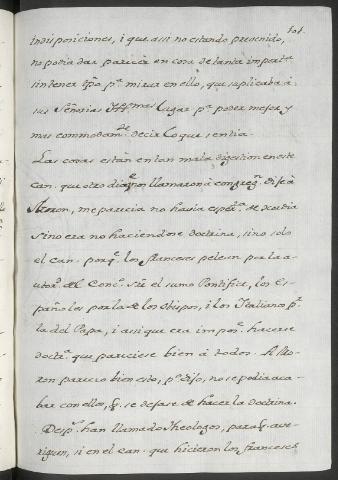 101.
indisposiciones, i que assi no estando prevenido,
no podia dar parecer en cosa de tanta importa
sin tener tpõ pª mirar en ello, que suplicaba á
sus Señorias Illmas lugar pª poder mejor y
mas commodamte decir lo que sentia.
Las cosas están en tan mala digestion en este
can. que otro dia nos llamaron á congreg.
me parecia no havia esperª de concordia
sino era no haciendose doctrina, sino solo
el can. porq los franceses pelean por la au
utorª del Concº sre el sumo Pontifice, los Es
pañoles por la de los Obispos, i los Italianos pr
la del Papa, i assi que era imposº hacerse
doctª que pareciese bien á todos.
parecio bien esto, pº dijo, no se podia aca
bar con ellos, q. se dejase de hacer la doctrina.
Despº han llamado Theologos, para q. ave
riguen, si en el can. que hicieron los franceses